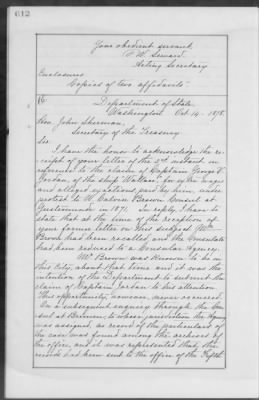 612
Your obedient servant,
F. W. Seward
Acting Secretary
Enclosures
Copies of two affidavits
Department of State
Washington Oct. 14. 1878.
Hon. John Sherman,
Secretary of the Treasury
Sir
I have the honor to acknowledge the re-
ceipt of your letter of the 2d instant in
reference to the claim of Captain George D.
Jordan, of the ship for extra wages
and alleged exactions, paid by him, under
protest to W. Brown Consul at
in 1871. In reply, I have to
state that at the time of the reception of
your former letter on this subject Mr.
Brown had been recalled, and the Consulate
had been reduced to a Consular Agency.
Mr. Brown was known to be in
this City, about that time and it was the
intention of the Department to submit the
claim of Captain Jordan to his attention.
This opportunity, however, never occurred.
On a subsequent enquiry through the Con-
sul at Bremen, to whose jurisdiction the Agency
was assigned, no record of the particulars of
the case was found among the archives of
the office, and it was represented that the
records had been sent to the office of the Fifth